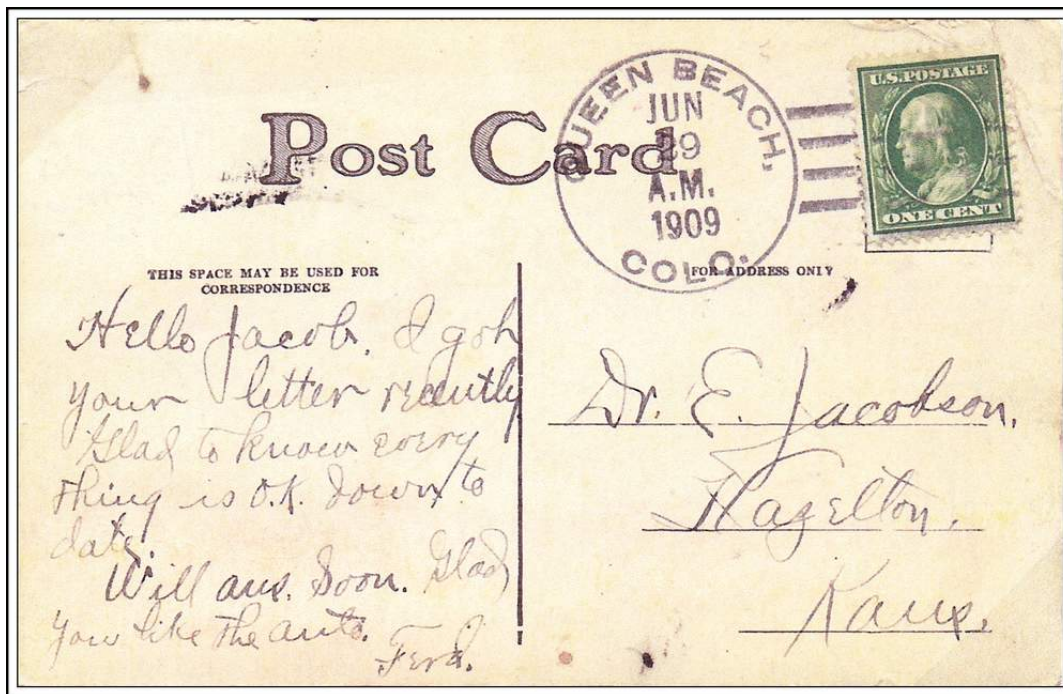 Post Card
QUEEN BEACH,
JUN
29
A.M.
1909
COLO.
U.S. POSTAGE
ONE CENT
THIS SPACE MAY BE USED FOR
CORRESPONDENCE
FOR ADDRESS ONLY
Hello Jacob, I got
your letter recently
Glad to know every
thing is O.K. down to
date.
Will ans. Soon. Glad
you like the auto.
Ferd.
Dr. E. Jacobson,
Hazelton,
Kans.